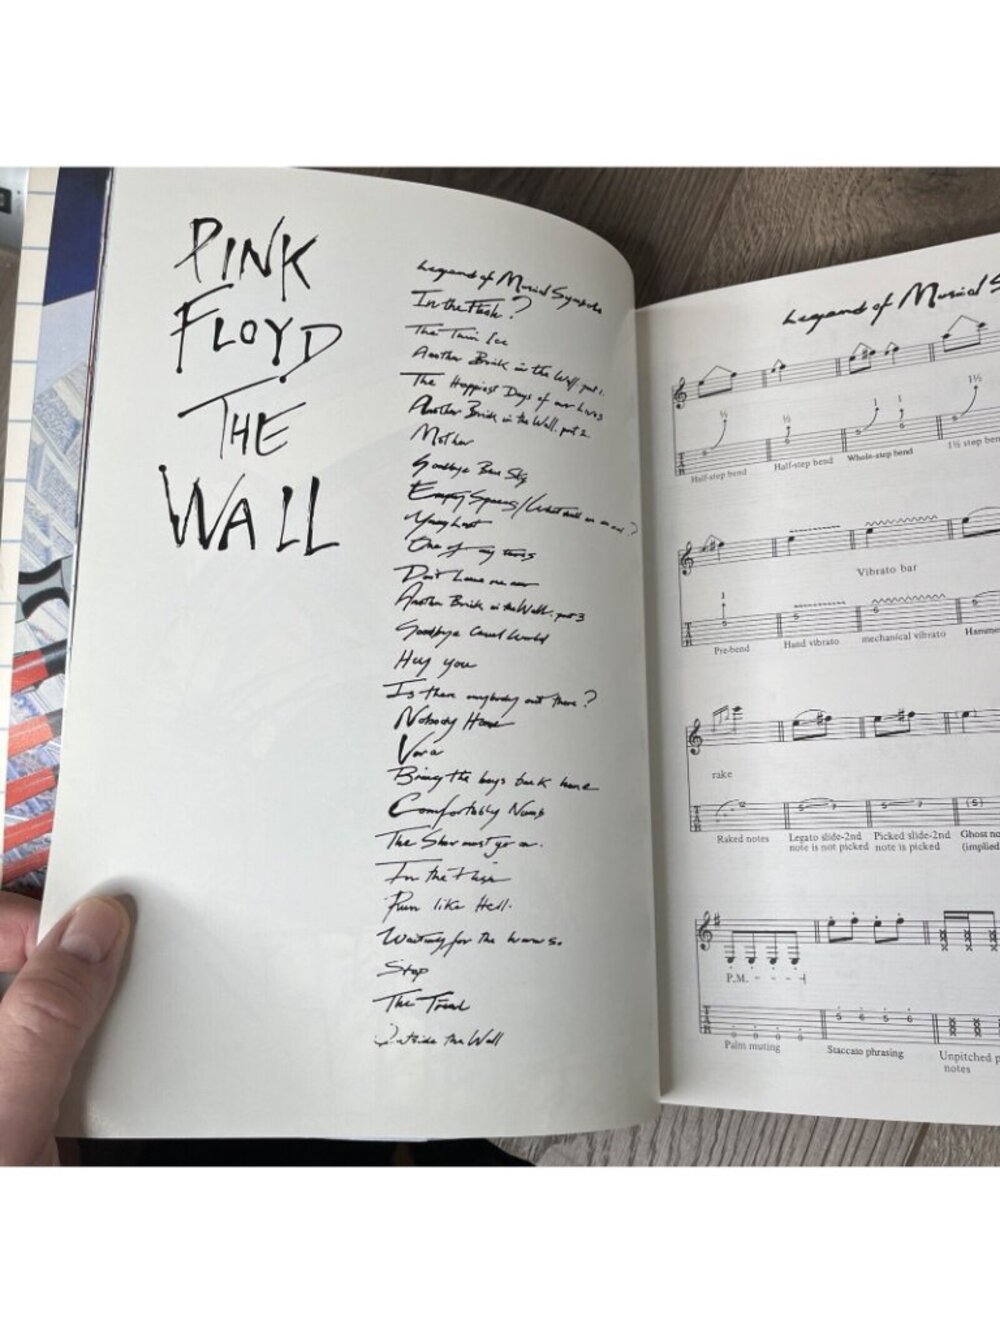 PINK
FLOYD
THE
WALL
Legend of Musical Symbols
In the Flesh?
The Thin Ice
Another Brick in the Wall part 1.
The Happiest Days of our Lives
Another Brick in the Wall. part 2
Mother
Goodbye Blue Sky
Empty Spaces/What shall we do now?
Young Lust
One of my turns
Don't Leave me now
Another Brick in the Wall. part 3
Goodbye Cruel World
Hey you
Is there anybody out there?
Nobody Home
Vera
Bring the boys back home
Comfortably Numb
The Show must go on.
In the Flesh
Run like Hell.
Waiting for the worms.
Stop
The Trial
Outside the Wall
Legend of Musical S
½ ½ 1 1 1½
Half-step bend Half-step bend Whole-step bend 1½ step ben
Vibrato bar
1
Pre-bend Hand vibrato mechanical vibrato Hamme
rake
Raked notes Legato slide-2nd note is not picked Picked slide-2nd note is picked Ghost no (implied
P.M.
5 6 5 6
Palm muting Staccato phrasing Unpitched p
notes